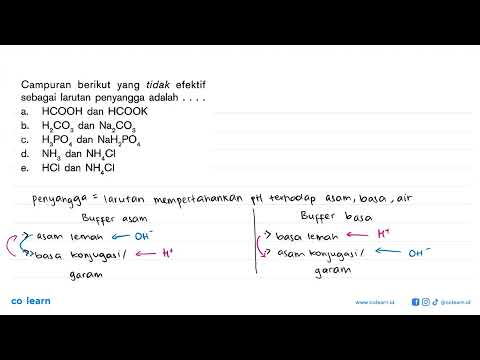 Campuran berikut yang tidak efektif
sebagai larutan penyangga adalah . . . .
a. HCOOH dan HCOOK
b. H₂CO₃ dan Na₂CO₃
c. H₃PO₄ dan NaH₂PO₄
d. NH₃ dan NH₄Cl
e. HCl dan NH₄Cl
penyangga = larutan mempertahankan pH terhadap asam, basa, air
Buffer asam
→ asam lemah ← OH⁻
→ basa konjugasi/ ← H⁺
garam
Buffer basa
→ basa lemah ← H⁺
→ asam konjugasi/ ← OH⁻
garam
co learn
www.colearn.id
@colearn.id